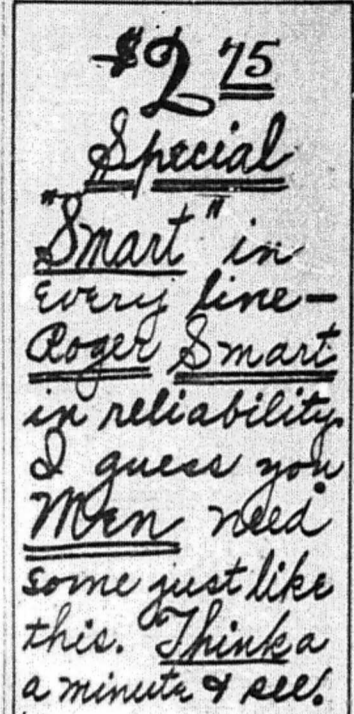 $2 75
Special
"Smart" in
every line—
Roger Smart
in reliability.
I guess you
Men need
some just like
this. Think a
a minute & see!